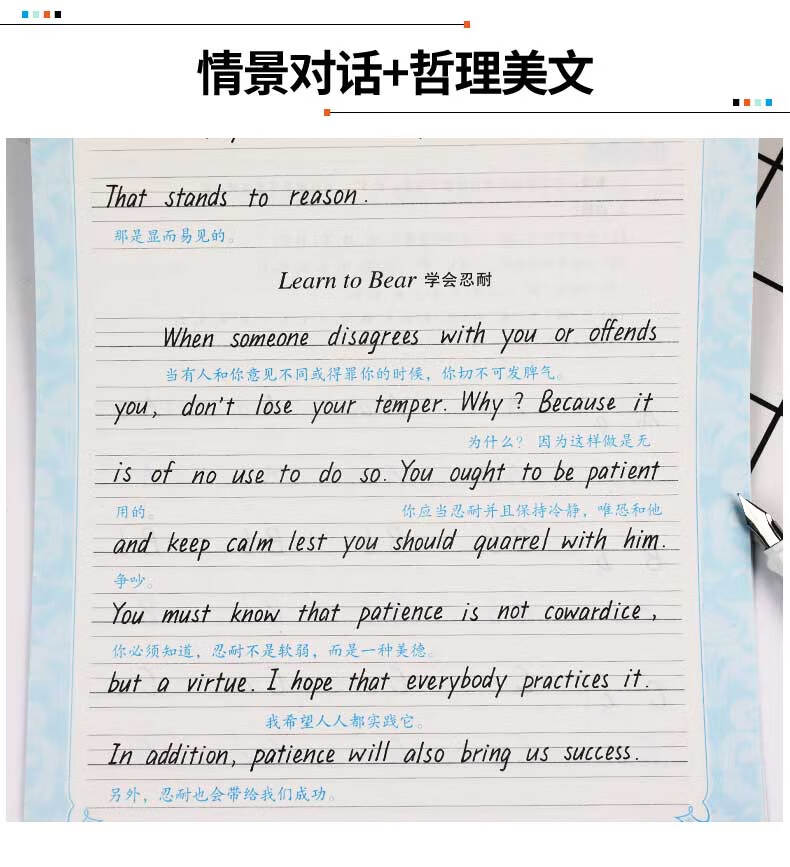 情景对话+哲理美文
That stands to reason.
那是显而易见的。
Learn to Bear 学会忍耐
When someone disagrees with you or offends
当有人和你意见不同或得罪你的时候，你切不可发脾气。
you, don't lose your temper. Why? Because it
为什么？ 因为这样做是无
is of no use to do so. You ought to be patient
用的。 你应当忍耐并且保持冷静，唯恐和他
and keep calm lest you should quarrel with him.
争吵。
You must know that patience is not cowardice,
你必须知道，忍耐不是软弱，而是一种美德。
but a virtue. I hope that everybody practices it.
我希望人人都实践它。
In addition, patience will also bring us success.
另外，忍耐也会带给我们成功。